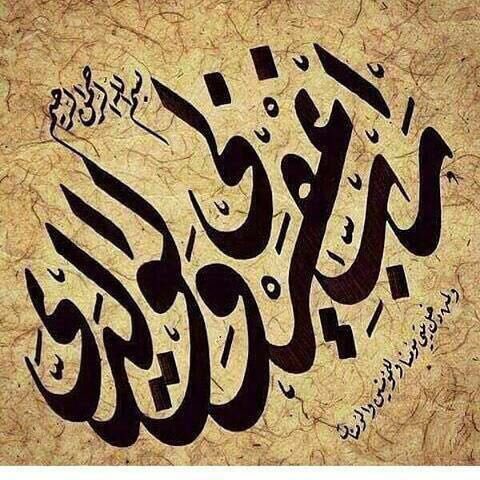 بسم الله الرحمن الرحیم
رَبِّ اغْفِرْ لِي وَلِوَالِدَيَّ
ولمن دخل بیتی مؤمنا وللمؤمنین والمؤمنات